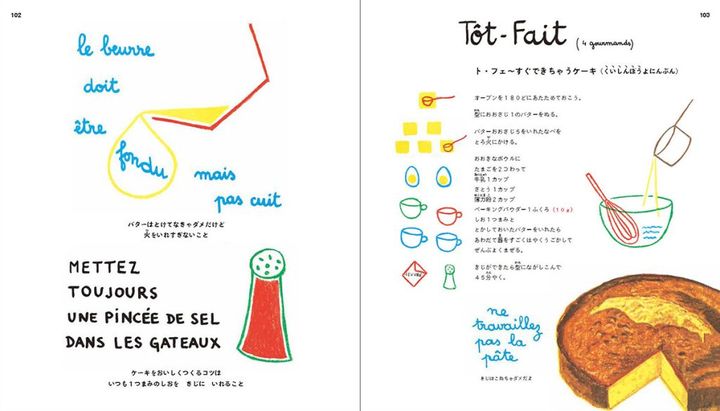 102
le beurre
doit
être
fondu mais
pas cuit
バターはとけてなきゃダメだけど
火をいれすぎないこと
METTEZ
TOUJOURS
UNE PINCÉE DE SEL
DANS LES GATEAUX
ケーキをおいしくつくるコツは
いつも1つまみのしおを きじに いれること
103
Tôt-Fait ( 4 gourmands)
ト・フェ〜すぐできちゃうケーキ(くいしんぼうよにんぶん)
オーブンを180どにあたためておこう。
型におおさじ1のバターをぬる。
バターおおさじ5をいれたなべを
とろ火にかける。
おおきなボウルに
たまごを2コわって
牛乳1カップ
さとう1カップ
薄力粉2カップ
ベーキングパウダー1ふくろ(10g)
しお1つまみと
とかしておいたバターをいれたら
あわだて器をすごくはやくうごかして
ぜんぶよくまぜる。
きじができたら型にながしこんで
45分やく。
ne
travaillez
pas la
pâte
きじはこねちゃダメだよ